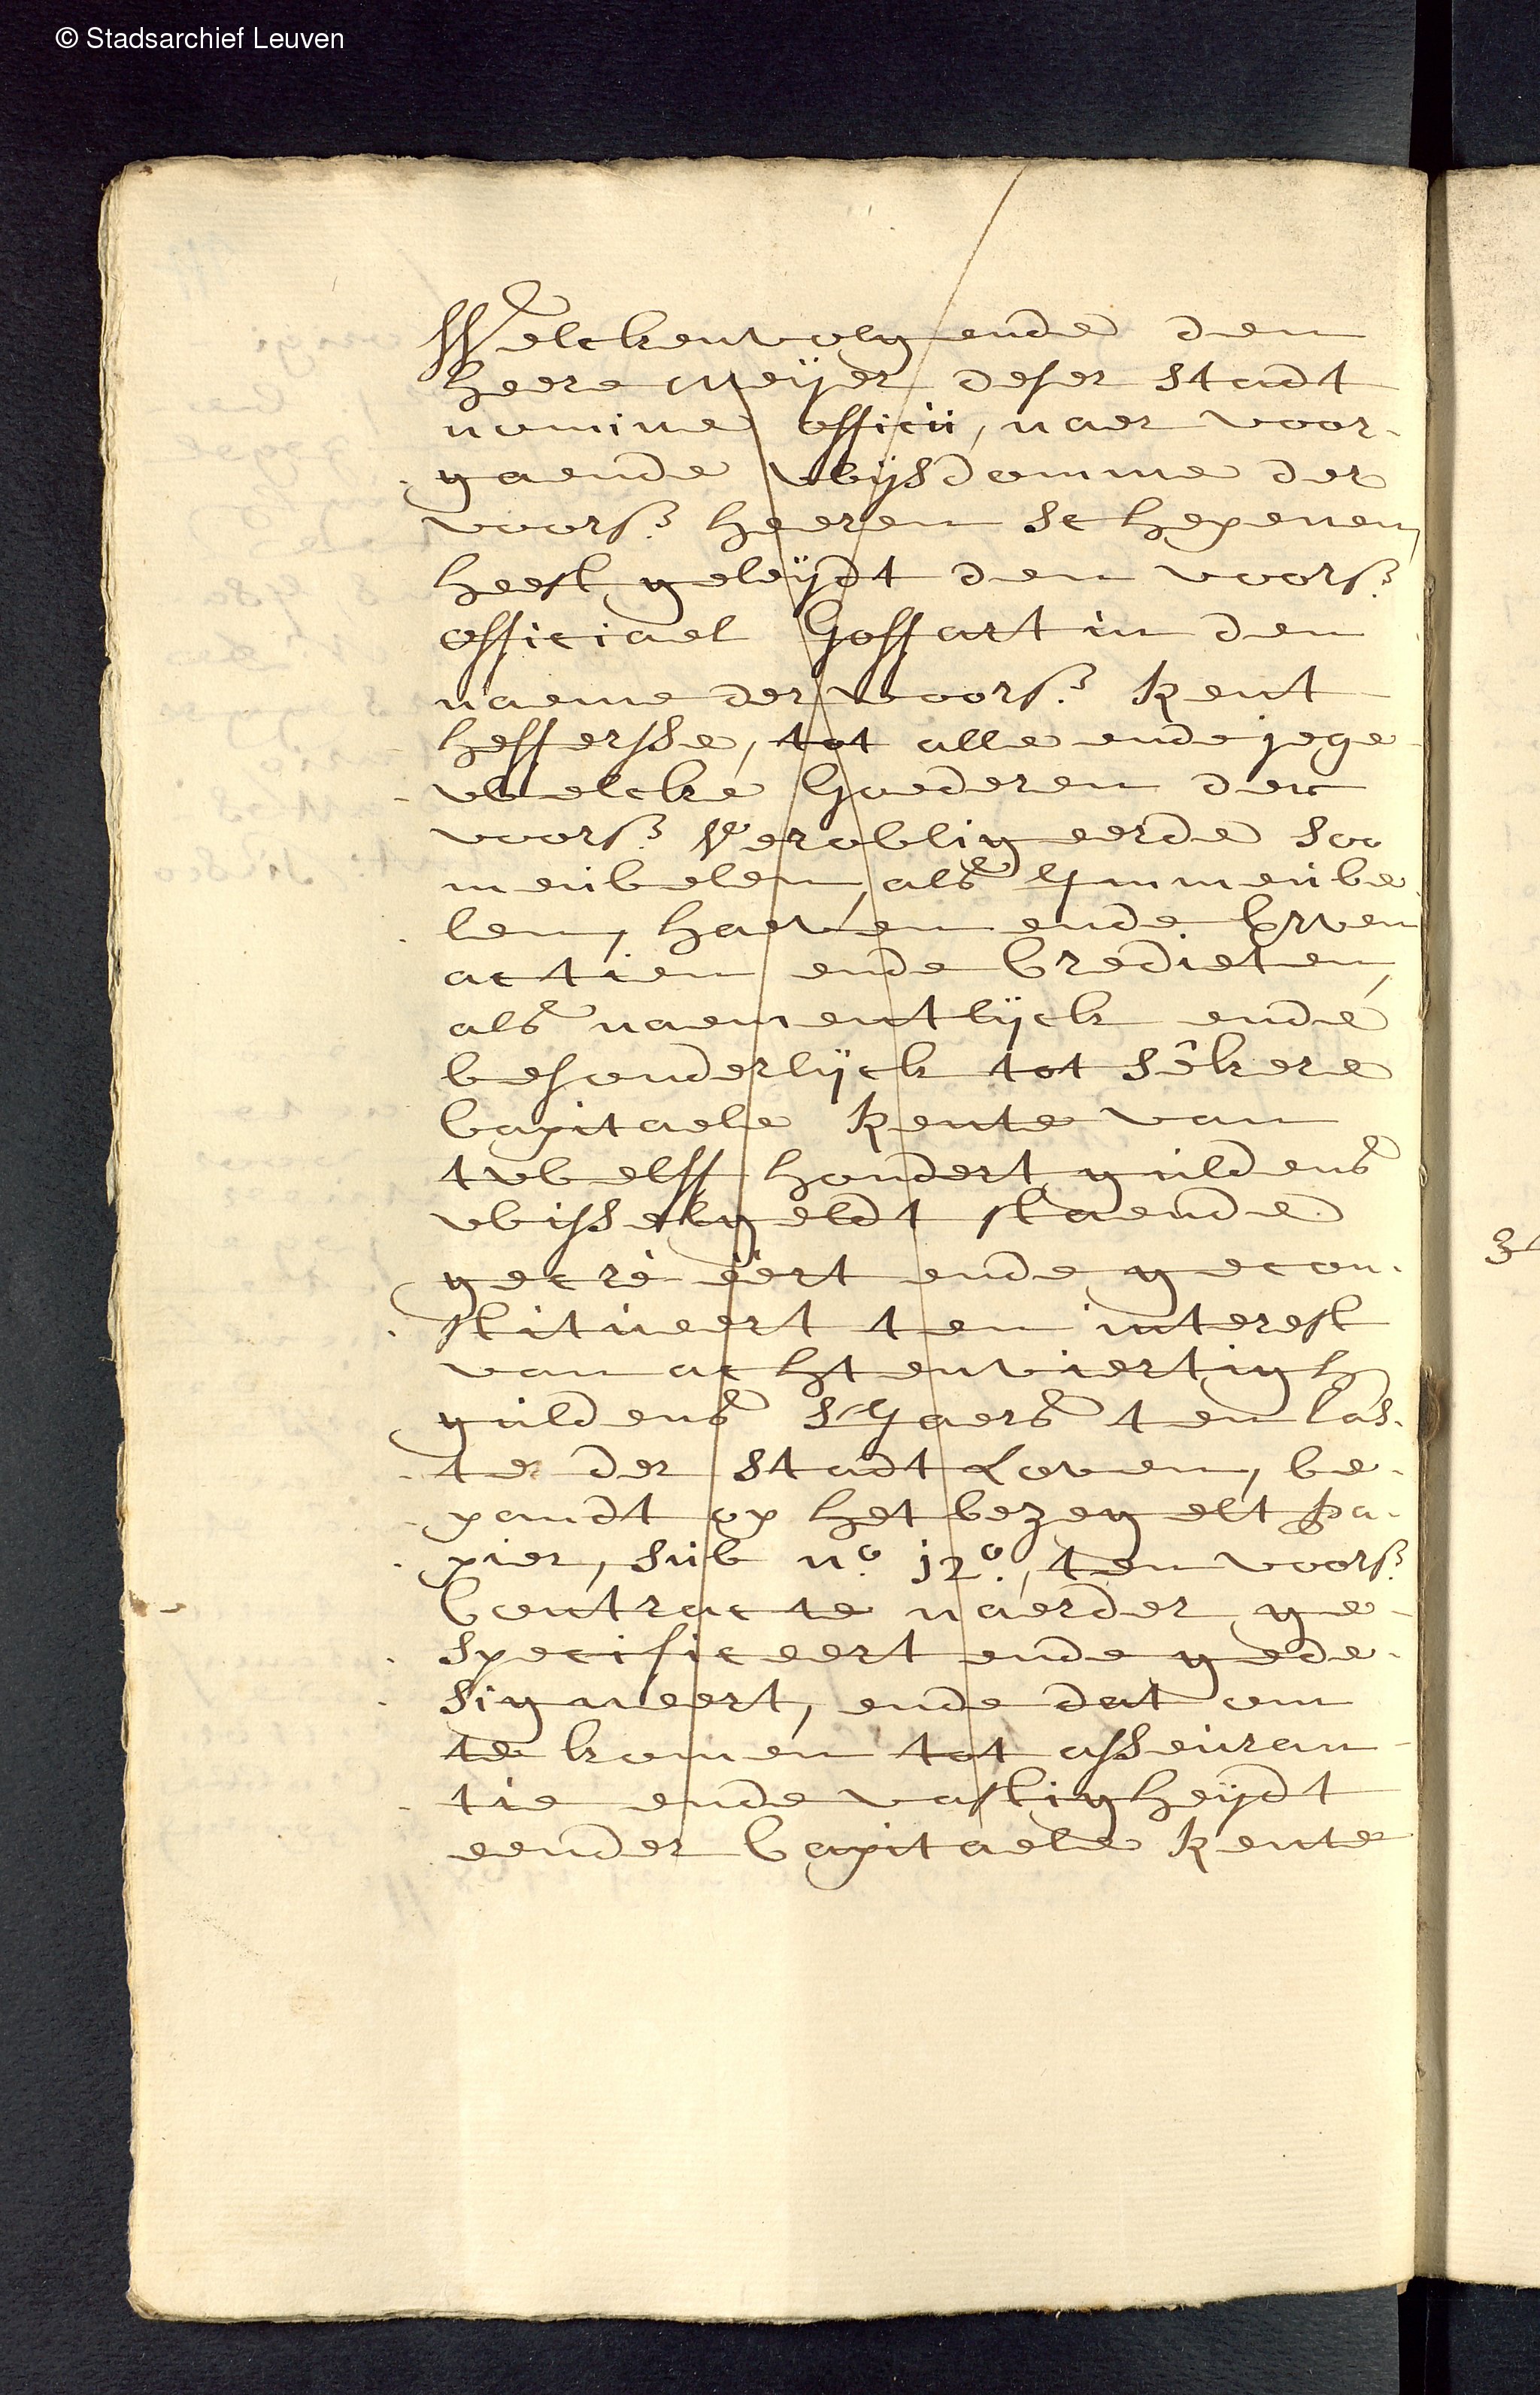 © Stadsarchief Leuven
Welckenvolgende den
heere Meijer deser stadt
nomine officii, naer voor-
gaende wijsdomme der
voors. heeren schepenen,
heeft geleijdt den voors.
officiael Goffart in den
naeme der voors. Rent
heffersse, tot alle ende jege
welcke Goederen der
voors. Verobligeerde soo
meubelen, als Ymmeube
len, haeven ende Erven
actien ende Credieten,
als naementlijck ende
besonderlijck tot sekere
Capitaele Rente van
twelff hondert guldens
wisselgeldt staende
gecreëert ende gecon-
stitueert ten interest
van achtenviertigh
guldens s'Yaers ten las-
te der stadt Loven, be-
pandt op het bezegelt pa-
pier, sub n.o 12.o, ten voors.
Contracte naerder ge-
specificeert ende gede-
signeert, ende dat om
te komen tot asseuran-
tie ende vastigheydt
eender Capitaele Rente